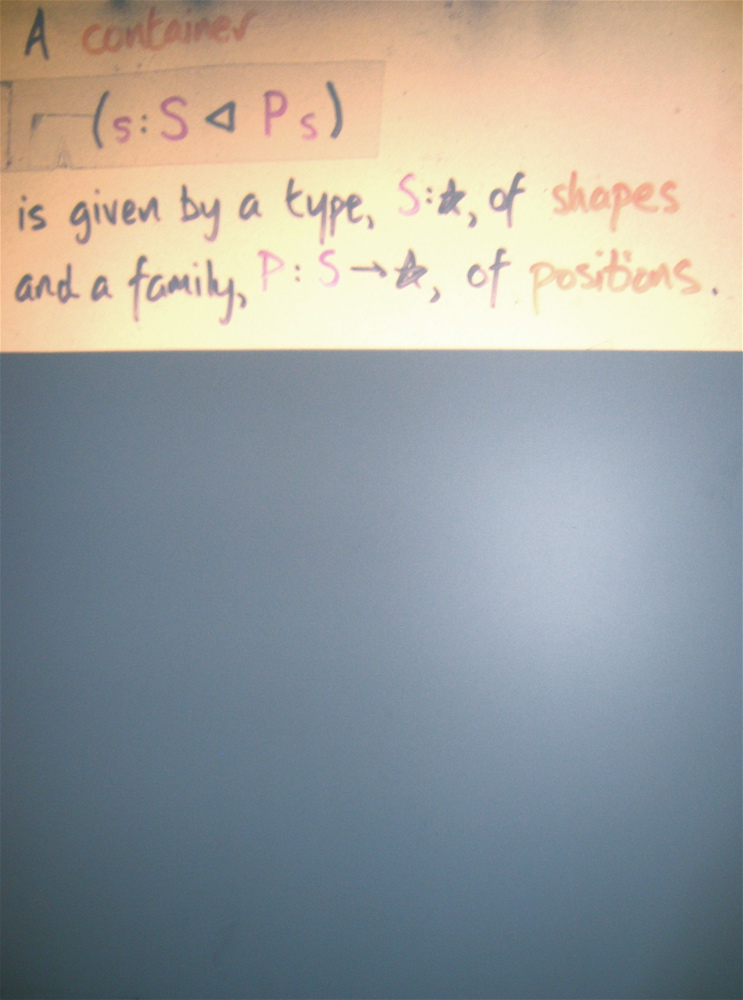 A container
(s:S ◁ P s)
is given by a type, S:★, of shapes
and a family, P:S→★, of positions.